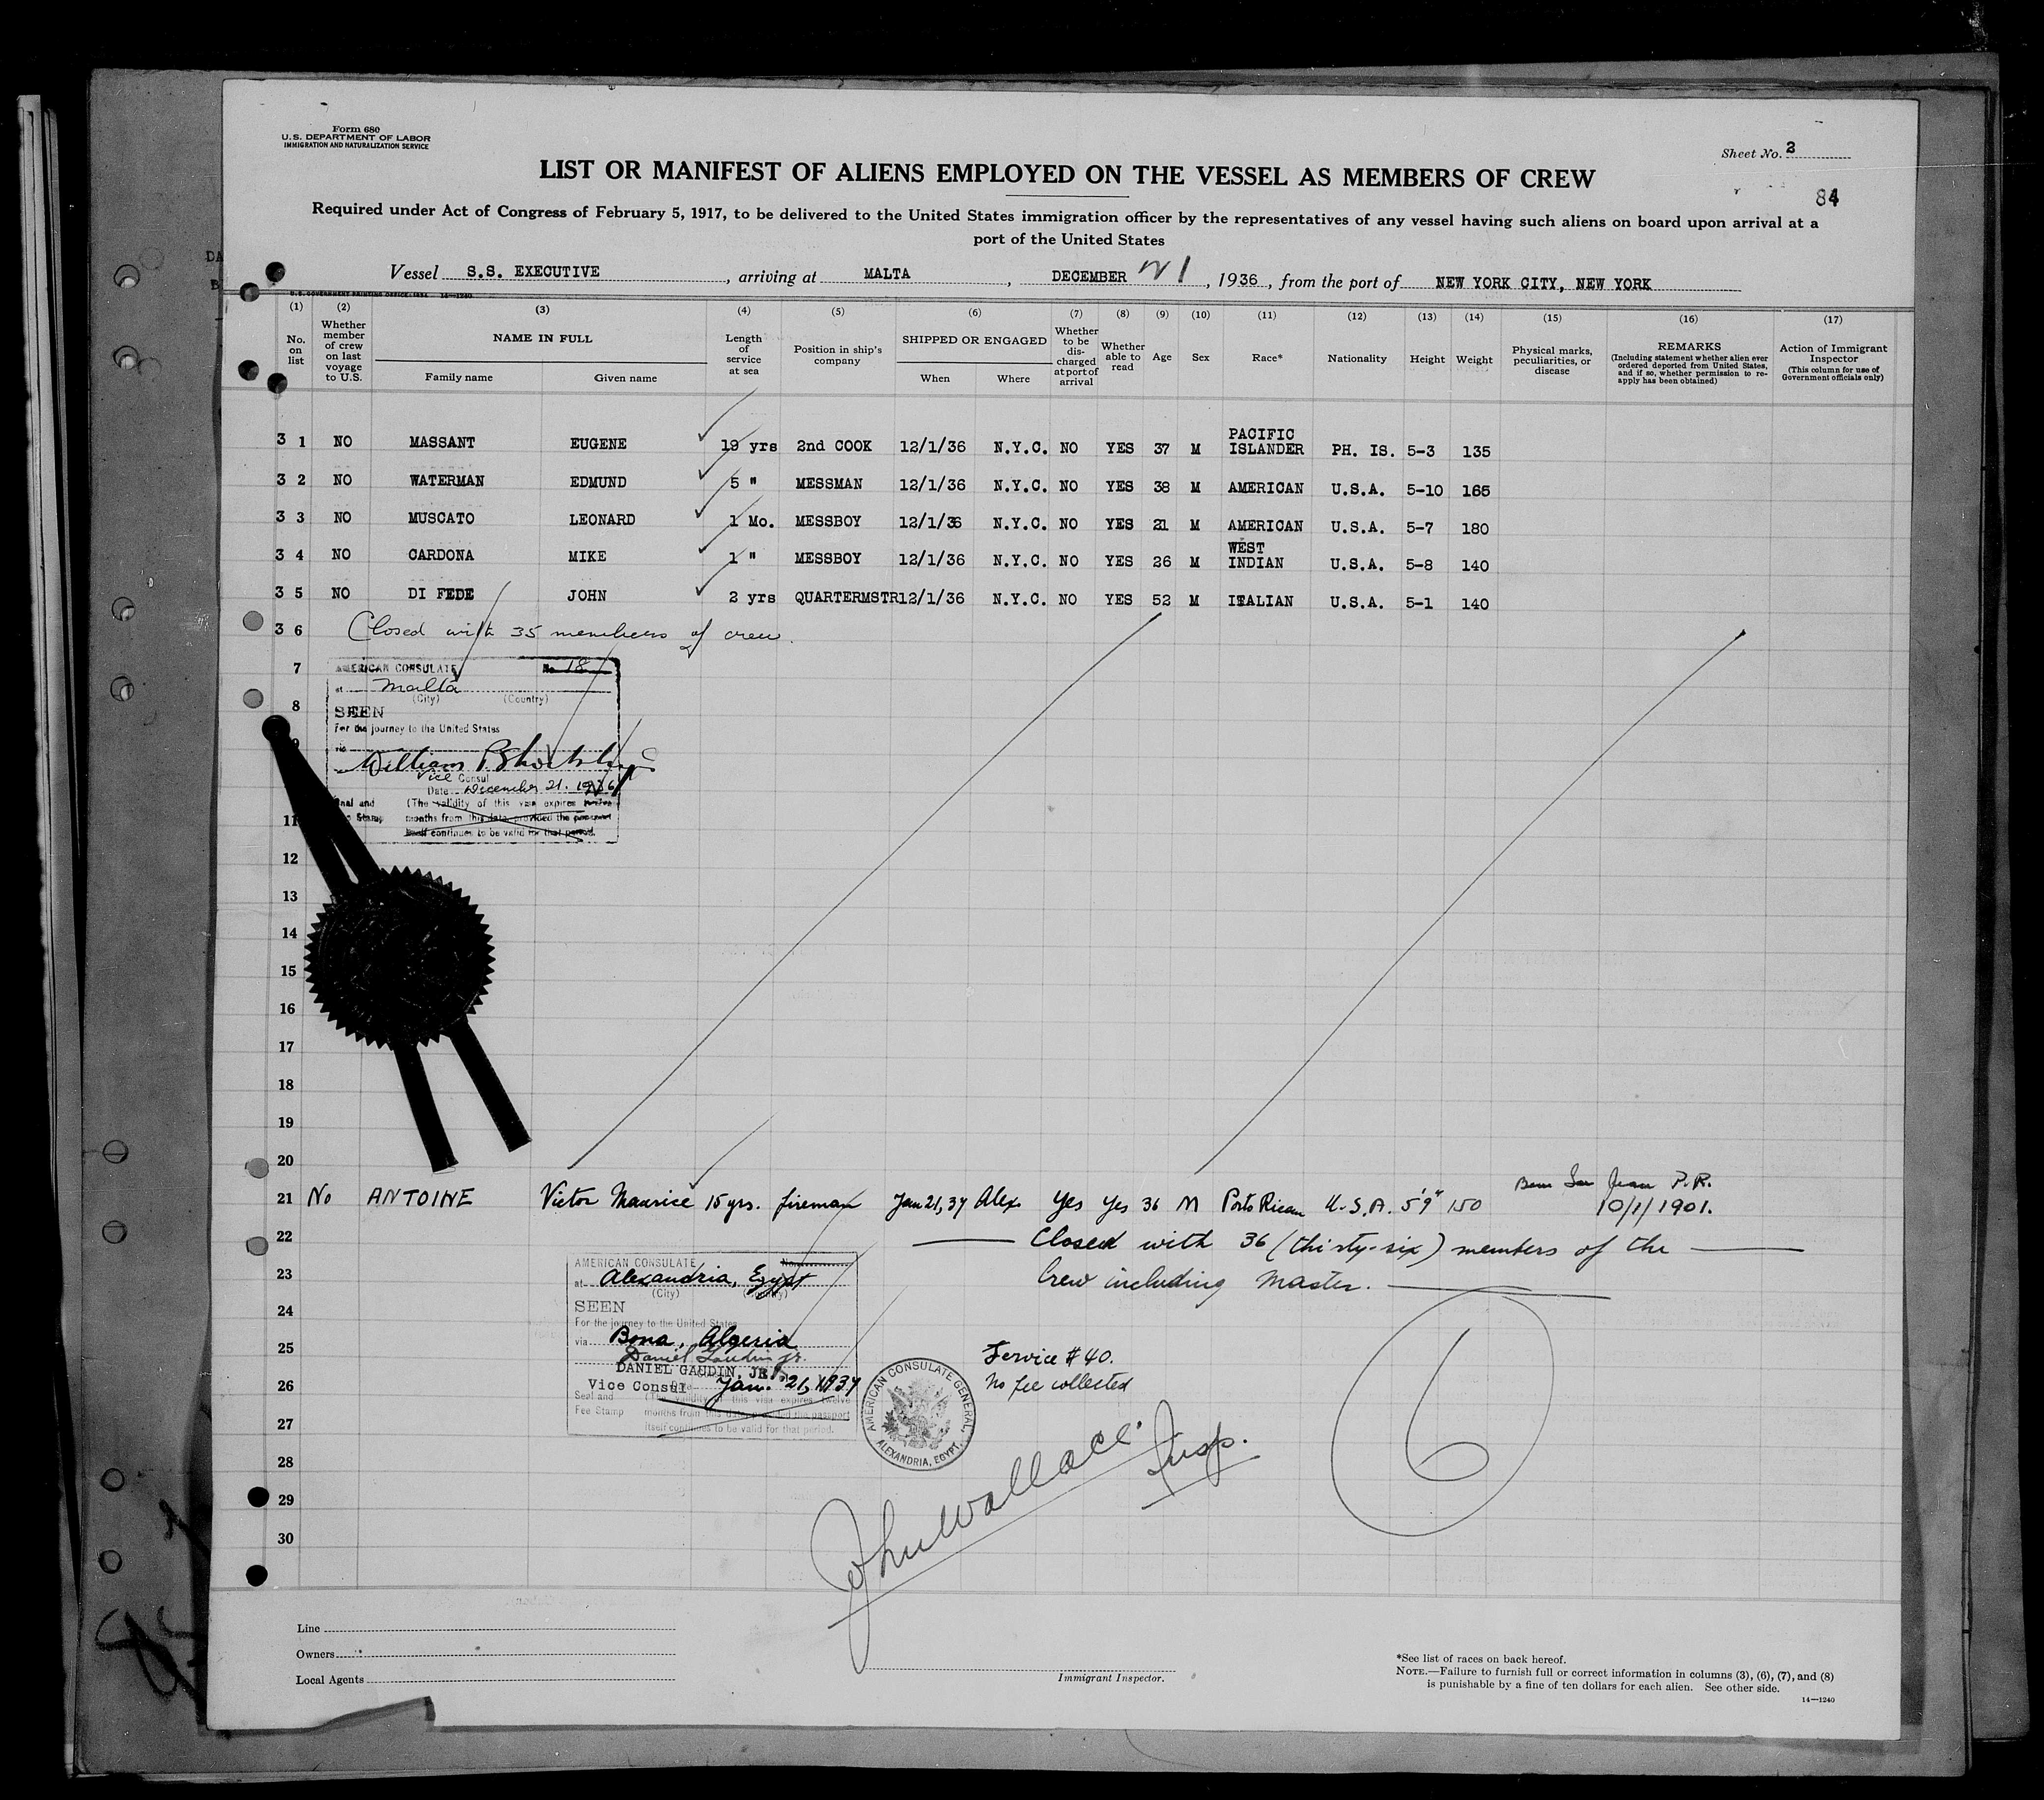 Form 680
U.S. DEPARTMENT OF LABOR
IMMIGRATION AND NATURALIZATION SERVICE
Sheet No. 2
84
LIST OR MANIFEST OF ALIENS EMPLOYED ON THE VESSEL AS MEMBERS OF CREW
Required under Act of Congress of February 5, 1917, to be delivered to the United States immigration officer by the representatives of any vessel having such aliens on board upon arrival at a
port of the United States
Vessel S.S. EXECUTIVE, arriving at MALTA, DECEMBER 21, 1936, from the port of NEW YORK CITY, NEW YORK
U.S. GOVERNMENT PRINTING OFFICE 14—1240
(1) (2) (3) (4) (5) (6) (7) (8) (9) (10) (11) (12) (13) (14) (15) (16) (17)
No. on list
Whether member of crew on last voyage to U.S.
NAME IN FULL
Family name Given name
Length of service at sea
Position in ship's company
SHIPPED OR ENGAGED
When Where
Whether to be discharged at port of arrival
Whether able to read
Age Sex Race* Nationality Height Weight
Physical marks, peculiarities, or disease
REMARKS
(Including statement whether alien ever ordered deported from United States, and if so, whether permission to reapply has been obtained)
Action of Immigrant Inspector
(This column for use of Government officials only)
3 1 NO MASSANT EUGENE 19 yrs 2nd COOK 12/1/36 N.Y.C. NO YES 37 M PACIFIC ISLANDER PH. IS. 5-3 135
3 2 NO WATERMAN EDMUND 5 " MESSMAN 12/1/36 N.Y.C. NO YES 38 M AMERICAN U.S.A. 5-10 165
3 3 NO MUSCATO LEONARD 1 Mo. MESSBOY 12/1/36 N.Y.C. NO YES 21 M AMERICAN U.S.A. 5-7 180
3 4 NO CARDONA MIKE 1 " MESSBOY 12/1/36 N.Y.C. NO YES 26 M WEST INDIAN U.S.A. 5-8 140
3 5 NO DI FEDE JOHN 2 yrs QUARTERMSTR 12/1/36 N.Y.C. NO YES 52 M ITALIAN U.S.A. 5-1 140
3 6 Closed with 35 members of crew.
7
AMERICAN CONSULATE No. 18
at Malta
(City) (Country)
8
SEEN
For the journey to the United States
9
via
William
Vice Consul
Date December 21, 1936
Seal and Fee Stamp
(The validity of this visa expires twelve
11
months from this date provided the passport
itself continues to be valid for that period.
12
13
14
15
16
17
18
19
20
21 No ANTOINE Victor Maurice 15 yrs. fireman Jan 21, 37 Alex. Yes Yes 36 M Porto Rican U.S.A. 5'9" 150 Born San Juan P.R.
10/1/1901.
22 Closed with 36 (thirty-six) members of the
23 Crew including Master.
AMERICAN CONSULATE No.
at Alexandria, Egypt
(City) (Country)
24
SEEN
For the journey to the United States
25
via Bona, Algeria
Daniel Gaudin Jr.
DANIEL GAUDIN, JR.
26
Vice Consul Jan. 21, 1937
Seal and Fee Stamp
(The validity of this visa expires twelve
27
months from this date provided the passport
itself continues to be valid for that period.
AMERICAN CONSULATE GENERAL, ALEXANDRIA, EGYPT.
Service # 40.
No fee collected
28
29
30
John Wallace Insp.
6
Line
Owners
Local Agents
Immigrant Inspector.
*See list of races on back hereof.
NOTE.—Failure to furnish full or correct information in columns (3), (6), (7), and (8)
is punishable by a fine of ten dollars for each alien. See other side.
14—1240